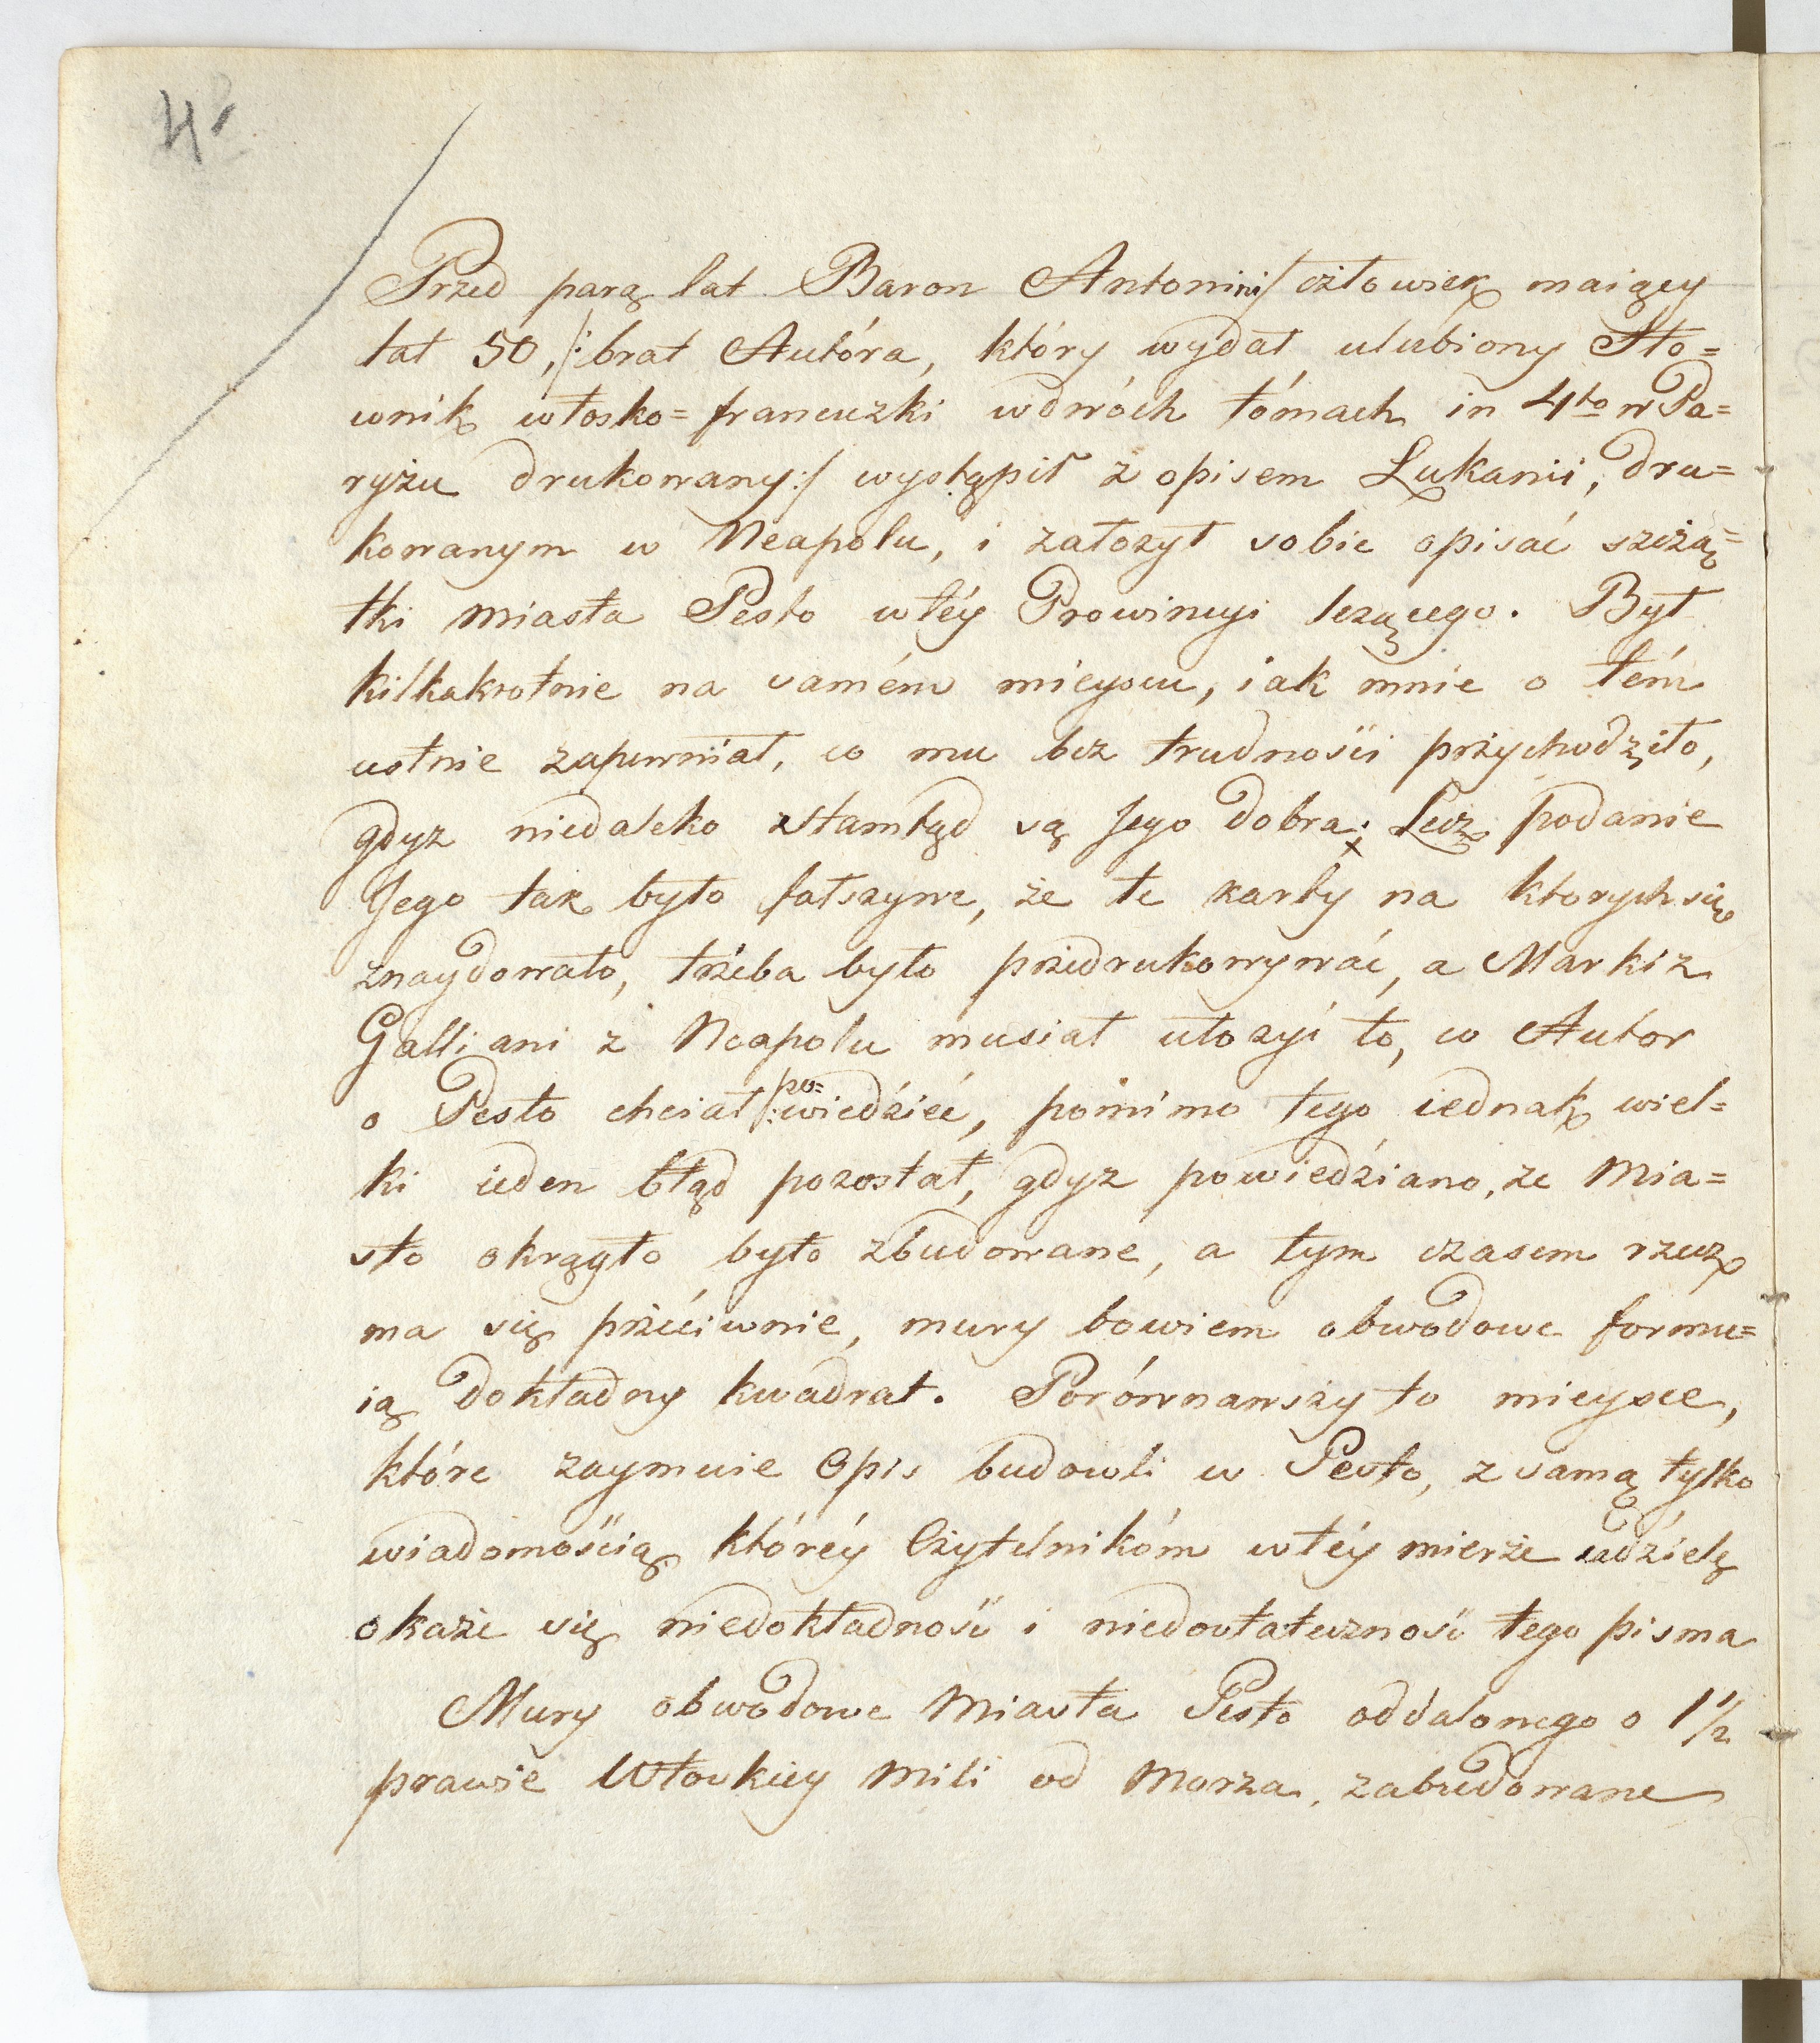 4
Przed parą lat Baron Antonini/ człowiek maiący
lat 50, /: brat Autóra, który wydał ulubiony Sło=
wnik włosko=francuzki wdwóch tómach in 4to w Pa=
ryżu drukowany:/ wystąpił z opisem Lukanii, dru=
kowanym w Neapolu, i założył sobie opisać szczą=
tki miasta Pesto wtéy Prowincyi leżącego. Był
kilkakrotnie na samém mieyscu, iak mnie o tém
ustnie zapewniał, co mu bez trudności przychodziło,
gdyż niedaleko ztamtąd są Jego dobra; Lecz podanie
Jego tak było fałszywe, że te karty na ktorych się
znaydowało, trzeba było przedrukowywać, a Markiz
Galliani z Neapolu musiał ułożyć to, co Autor
o Pesto chciał /: po=wiedzieć, pomimo tego iednak wiel=
ki ieden błąd pozostał, gdyż powiedziano, że Mia=
sto okrągło było zbudowane, a tym czasem rzecz
ma się przeciwnie, mury bowiem obwodowe formu=
ią dokładny kwadrat. Porównawszy to mieysce,
które zaymuie Opis budowli w Pesto, z samą tylko
wiadomością któréy Czytelnikóm wtéy mierze udzielę
okaże się niedokładność i niedostateczność tego pisma
Mury obwodowe Miasta Pesto oddalonego o 1 1/2
prawie Włoskiey Mili od Morza, zabudowane